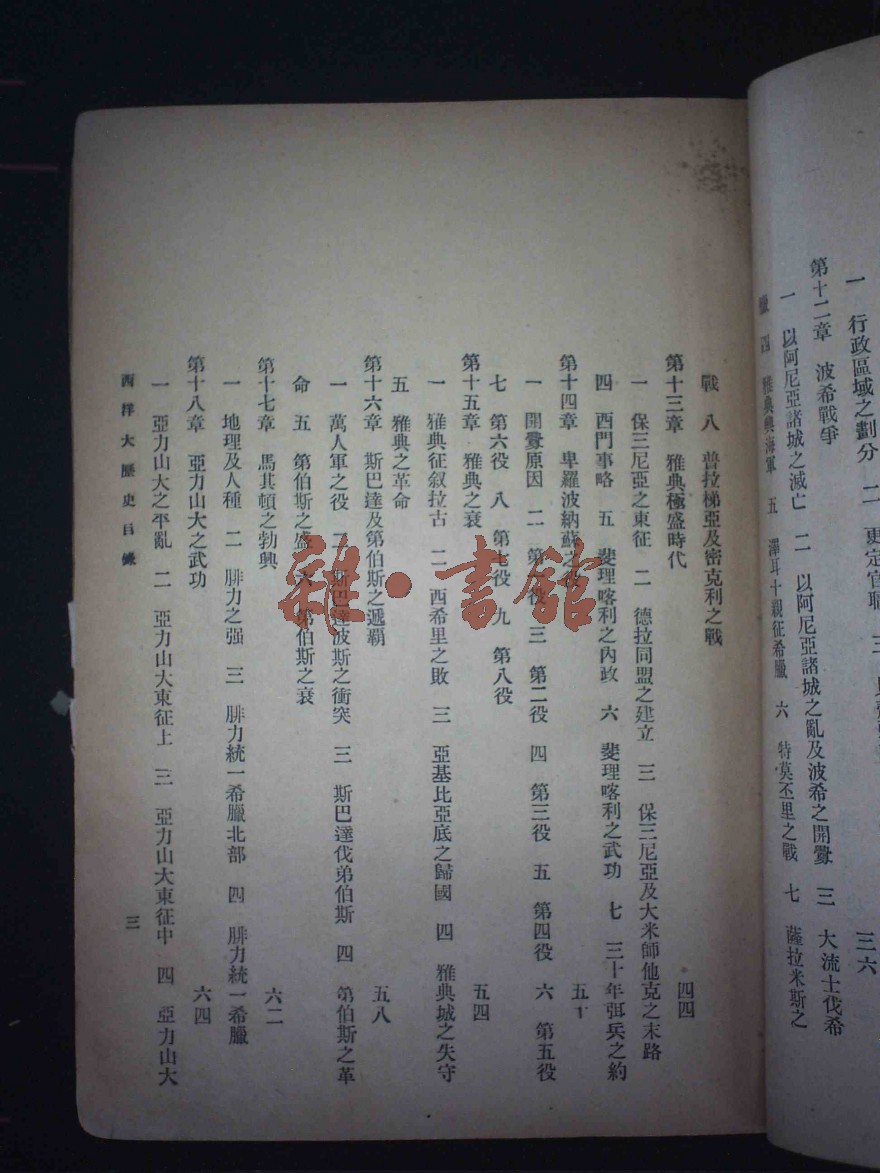 一　行政區域之劃分　二　更定官職　三
第十二章　波希戰爭　三六
一　以阿尼亞諸城之滅亡　二　以阿尼亞諸城之亂及波希之開釁　三　大流士伐希
臘　四　雅典興海軍　五　澤耳士親征希臘　六　特莫丕里之戰　七　薩拉米斯之
戰　八　普拉梯亞及密克利之戰
第十三章　雅典極盛時代　四四
一　保三尼亞之東征　二　德拉同盟之建立　三　保三尼亞及大米師他克之末路
四　西門事略　五　斐理喀利之內政　六　斐理喀利之武功　七　三十年弭兵之約
第十四章　卑羅波納蘇之役　五一
一　開釁原因　二　第一役　三　第二役　四　第三役　五　第四役　六　第五役
七　第六役　八　第七役　九　第八役
第十五章　雅典之衰　五四
一　雅典征叙拉古　二　西希里之敗　三　亞基比亞底之歸國　四　雅典城之失守
五　雅典之革命
第十六章　斯巴達及第伯斯之遞霸　五八
一　萬人軍之役　二　斯巴達波斯之衝突　三　斯巴達伐弟伯斯　四　第伯斯之革
命　五　第伯斯之盛　六　第伯斯之衰
第十七章　馬其頓之勃興　六二
一　地理及人種　二　腓力之强　三　腓力統一希臘北部　四　腓力統一希臘
第十八章　亞力山大之武功　六四
一　亞力山大之平亂　二　亞力山大東征上　三　亞力山大東征中　四　亞力山大
西洋大歷史目錄　三
雜·書館